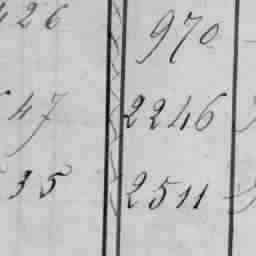 426 970
47 2246
35 2511